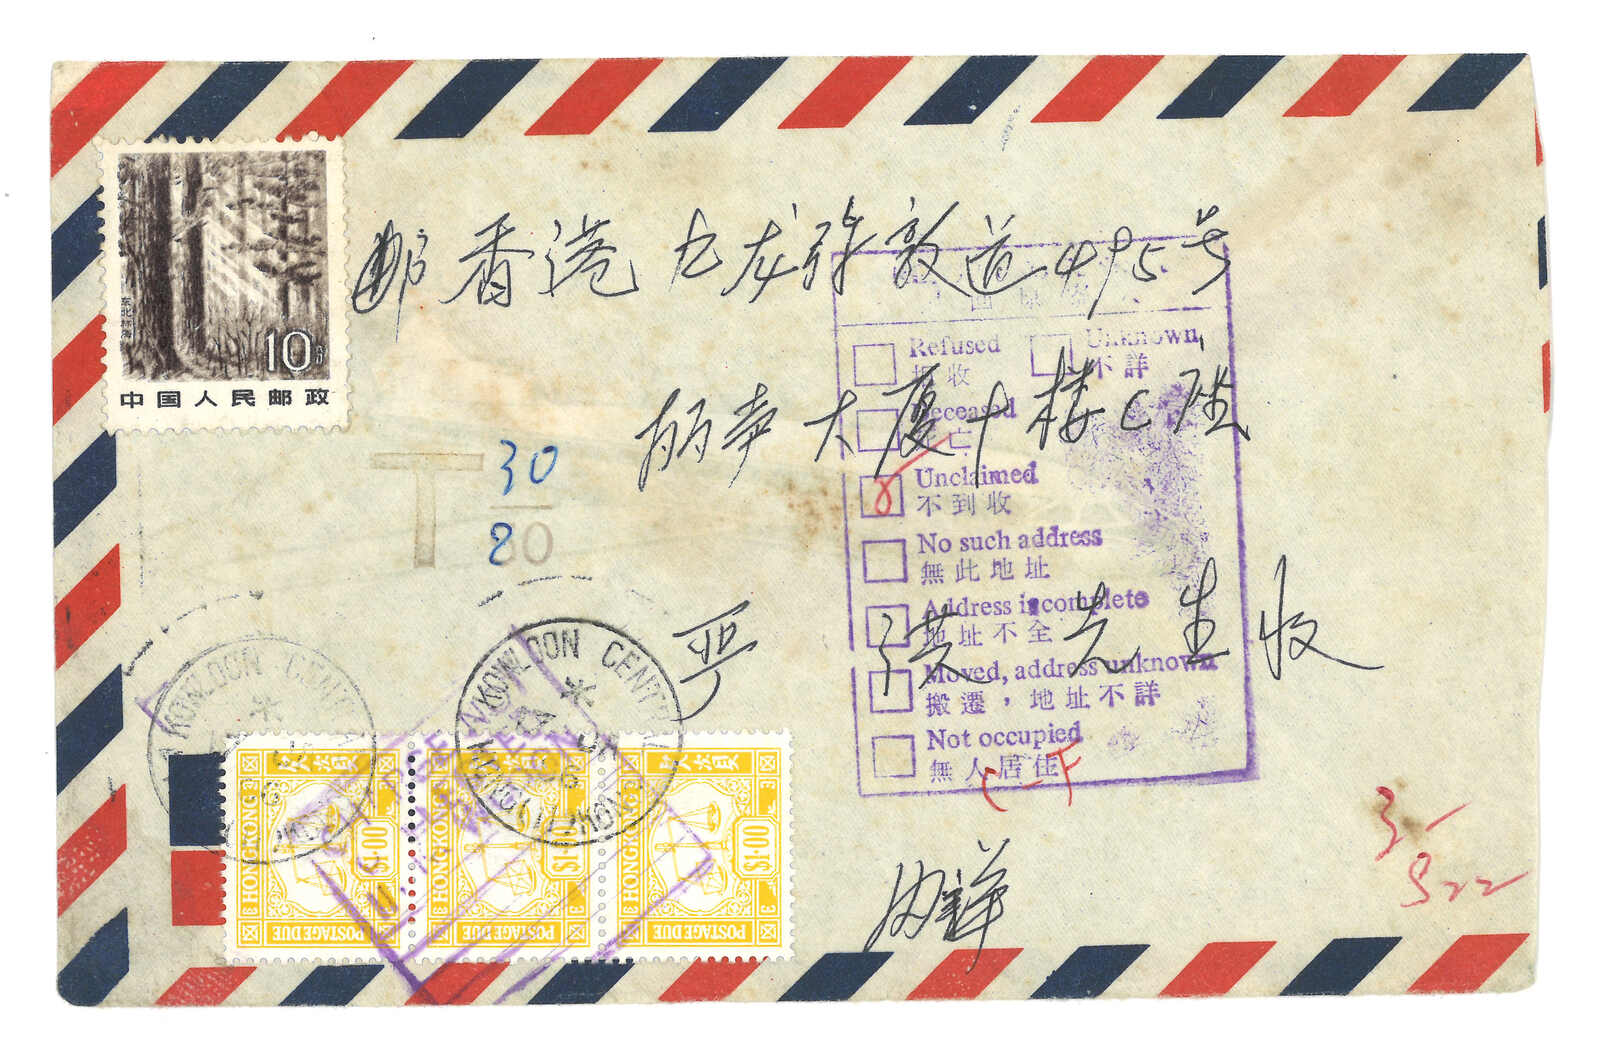 邮香港九龙弥敦道495号
丽华大厦十楼C座
严 洪先生收
内详
东北林海
10分
中国人民邮政
T 30
80
Refused
拒收
Unknown
不詳
Deceased
死亡
Unclaimed
不到收
No such address
無此地址
Address incomplete
地址不全
Moved, address unknown
搬遷，地址不詳
Not occupied
無人居住
C-F
3-
S22
KOWLOON CENTRAL
KOWLOON CENTRAL
HONG KONG $1.00 POSTAGE DUE
HONG KONG $1.00 POSTAGE DUE
HONG KONG $1.00 POSTAGE DUE